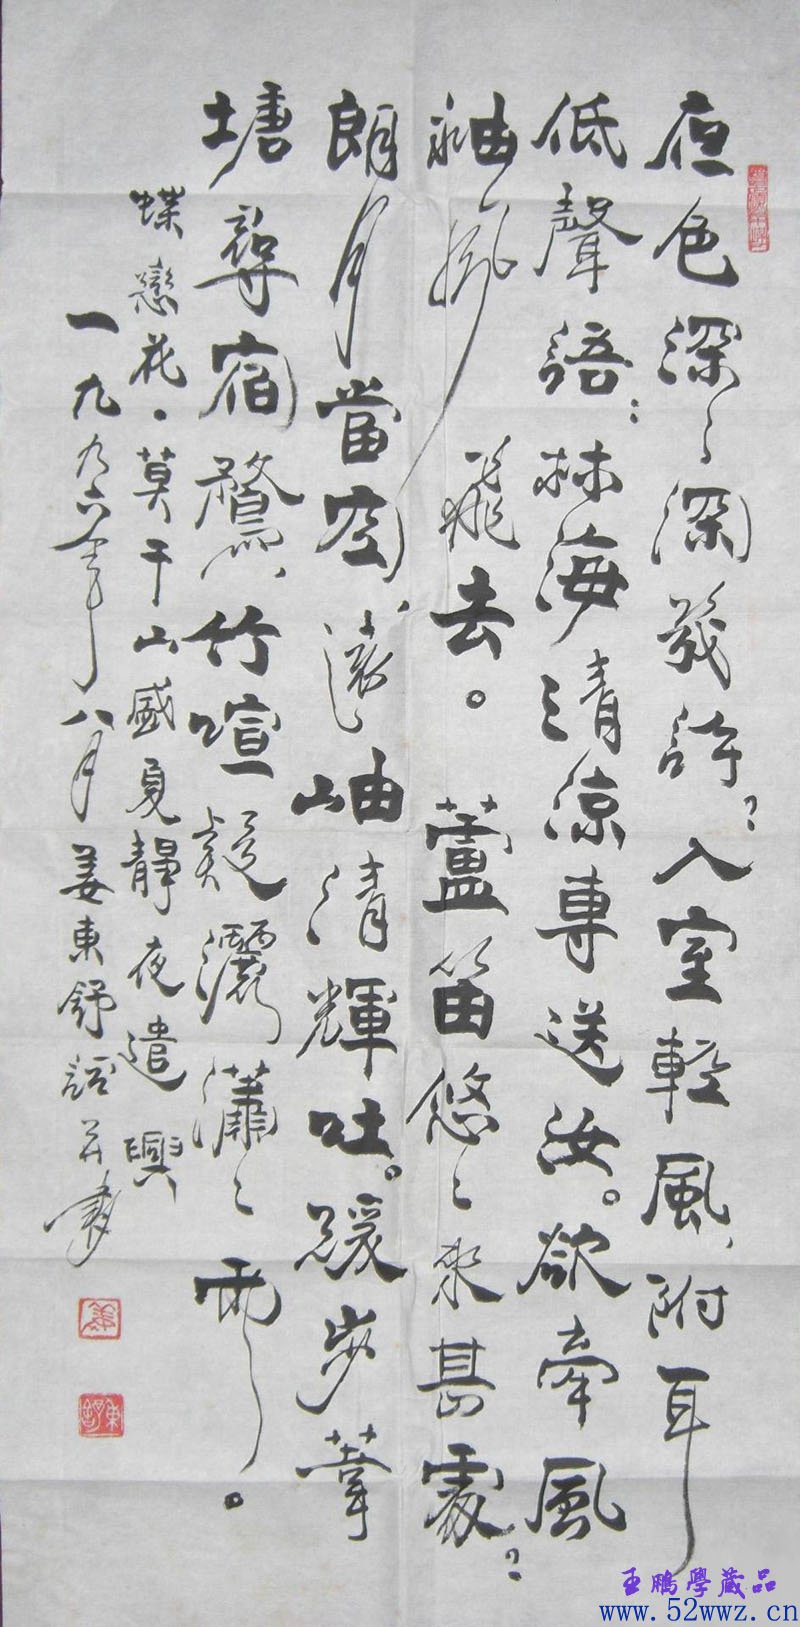 夜色深〻深幾許？入室輕風、附耳
低聲語：林海清涼專送汝。欲牽風
袖風飛去。蘆笛悠〻來甚處？
朗月當空、遠岫清輝吐。緩步葦
塘尋宿鶩、竹喧疑灑瀟〻雨。
蝶戀花·莫干山盛夏靜夜遣興
一九九六年八月姜東舒并書
王鵬學藏品
www.52wwz.cn